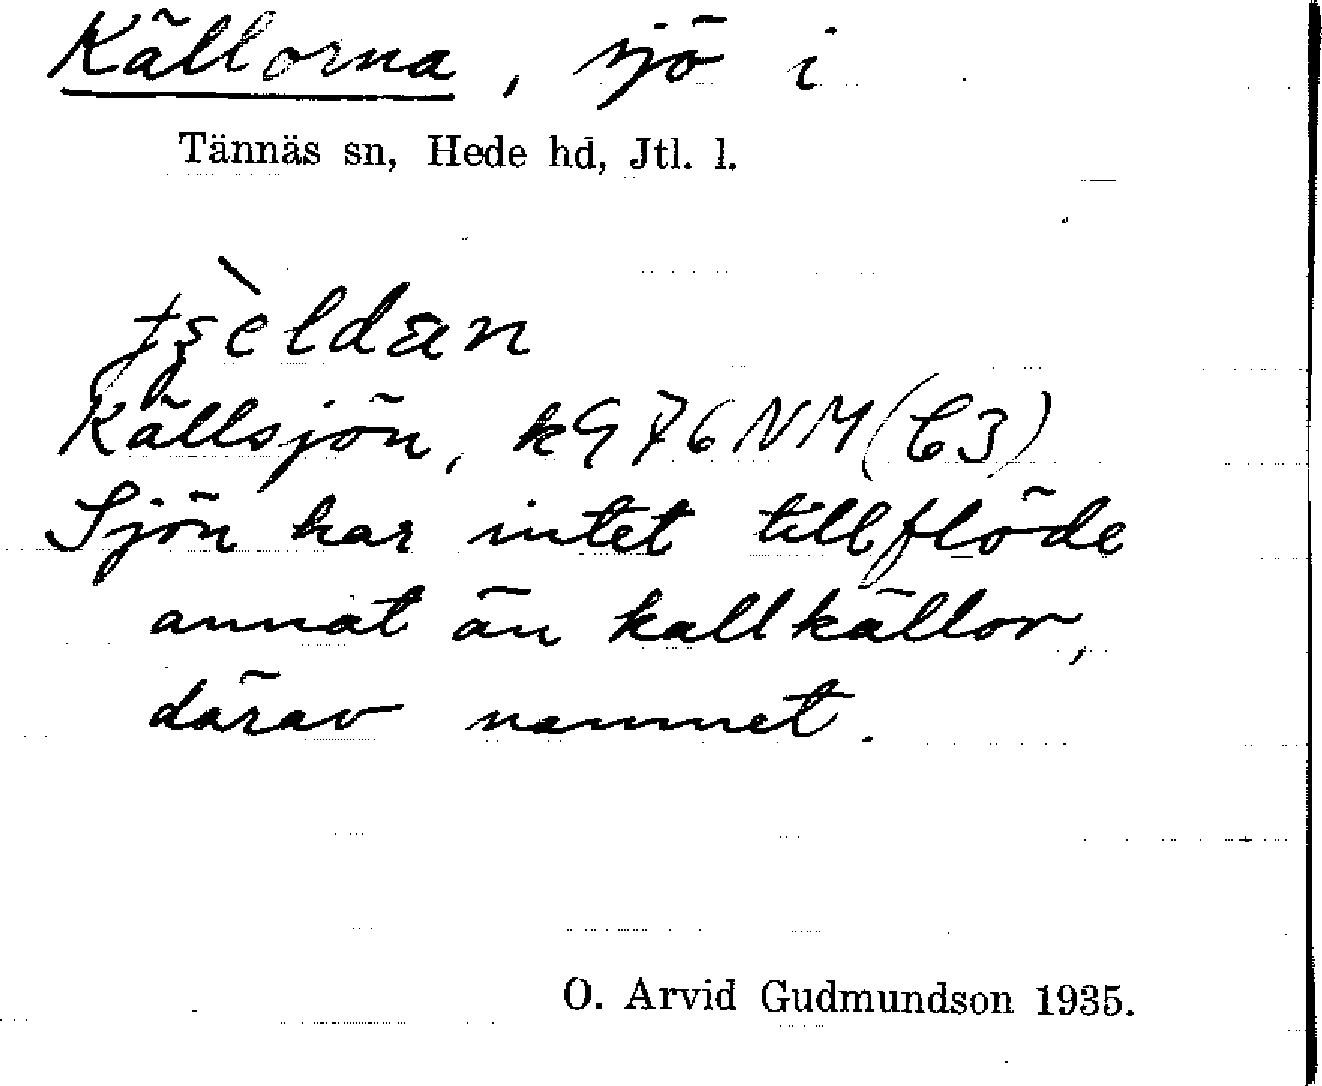 Källorna, sjö i
Tännäs sn, Hede hd, Jtl. l.
Källsjön, k976NM(C3)
Sjön har intet tillflöde
annat än kallkällor,
därav namnet.
O. Arvid Gudmundson 1935.